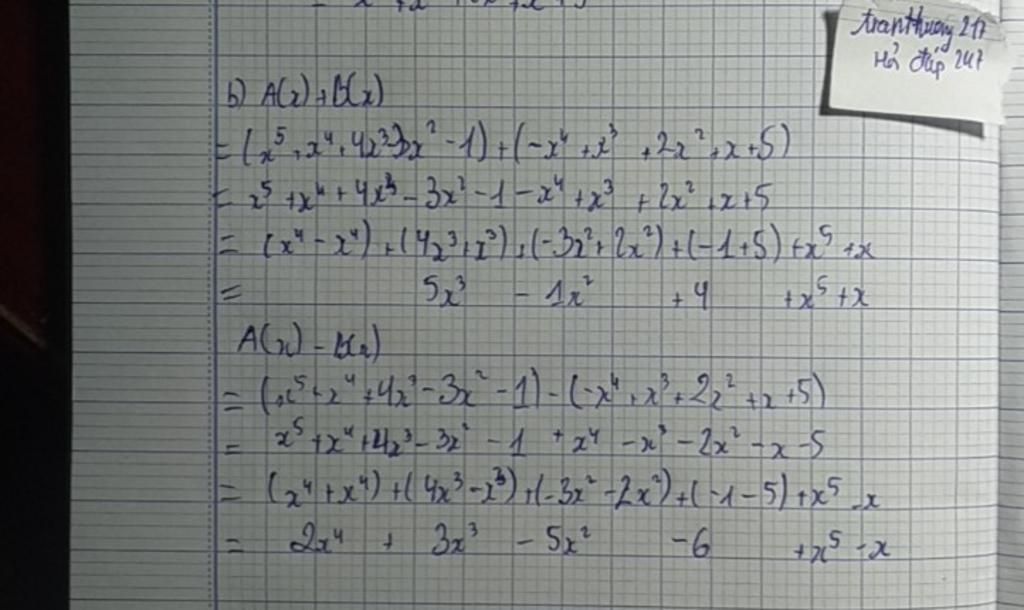 tranthuong 217
Hỏi đáp 247
b) A(x) + B(x)
= (x⁵ + x⁴ + 4x³ - 3x² - 1) + (-x⁴ + x³ + 2x² + x + 5)
= x⁵ + x⁴ + 4x³ - 3x² - 1 - x⁴ + x³ + 2x² + x + 5
= (x⁴ - x⁴) + (4x³ + x³) + (-3x² + 2x²) + (-1 + 5) + x⁵ + x
= 5x³ - 1x² + 4 + x⁵ + x
A(x) - B(x)
= (x⁵ + x⁴ + 4x³ - 3x² - 1) - (-x⁴ + x³ + 2x² + x + 5)
= x⁵ + x⁴ + 4x³ - 3x² - 1 + x⁴ - x³ - 2x² - x - 5
= (x⁴ + x⁴) + (4x³ - x³) + (-3x² - 2x²) + (-1 - 5) + x⁵ - x
= 2x⁴ + 3x³ - 5x² - 6 + x⁵ - x